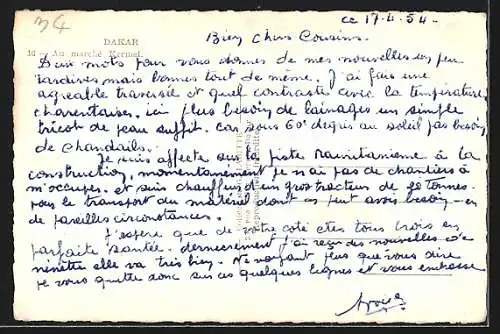 3G
ce 17.4.54.
DAKAR
16 - Au marché Kermel.
Bien Chers Cousins.
Deux mots pour vous donner de mes nouvelles un peu
tardives mais bonnes tout de même. J'ai fais une
agreable traversée et quel contraste avec la température
charentaise. ici plus besoin de lainages un simple
tricot de peau suffit. car sous 60° degrés au soleil pas besoin
de chandails.
Je suis affecté sur la piste Mauritanienne à la
construction, momentanement je n'ai pas de chantiers à
m'occuper. et suis chauffeur d'un gros tracteur de 20 tonnes.
pour le transport du matériel dont on peut avoir besoin en
de pareilles circonstances.
J'espère que de votre coté etes tous trois en
parfaite santée. dernierement j'ai reçu des nouvelles de
nénette elle va très bien. Ne voyant plus que vous dire
je vous quitte donc sur ces quelques lignes et vous embrasse